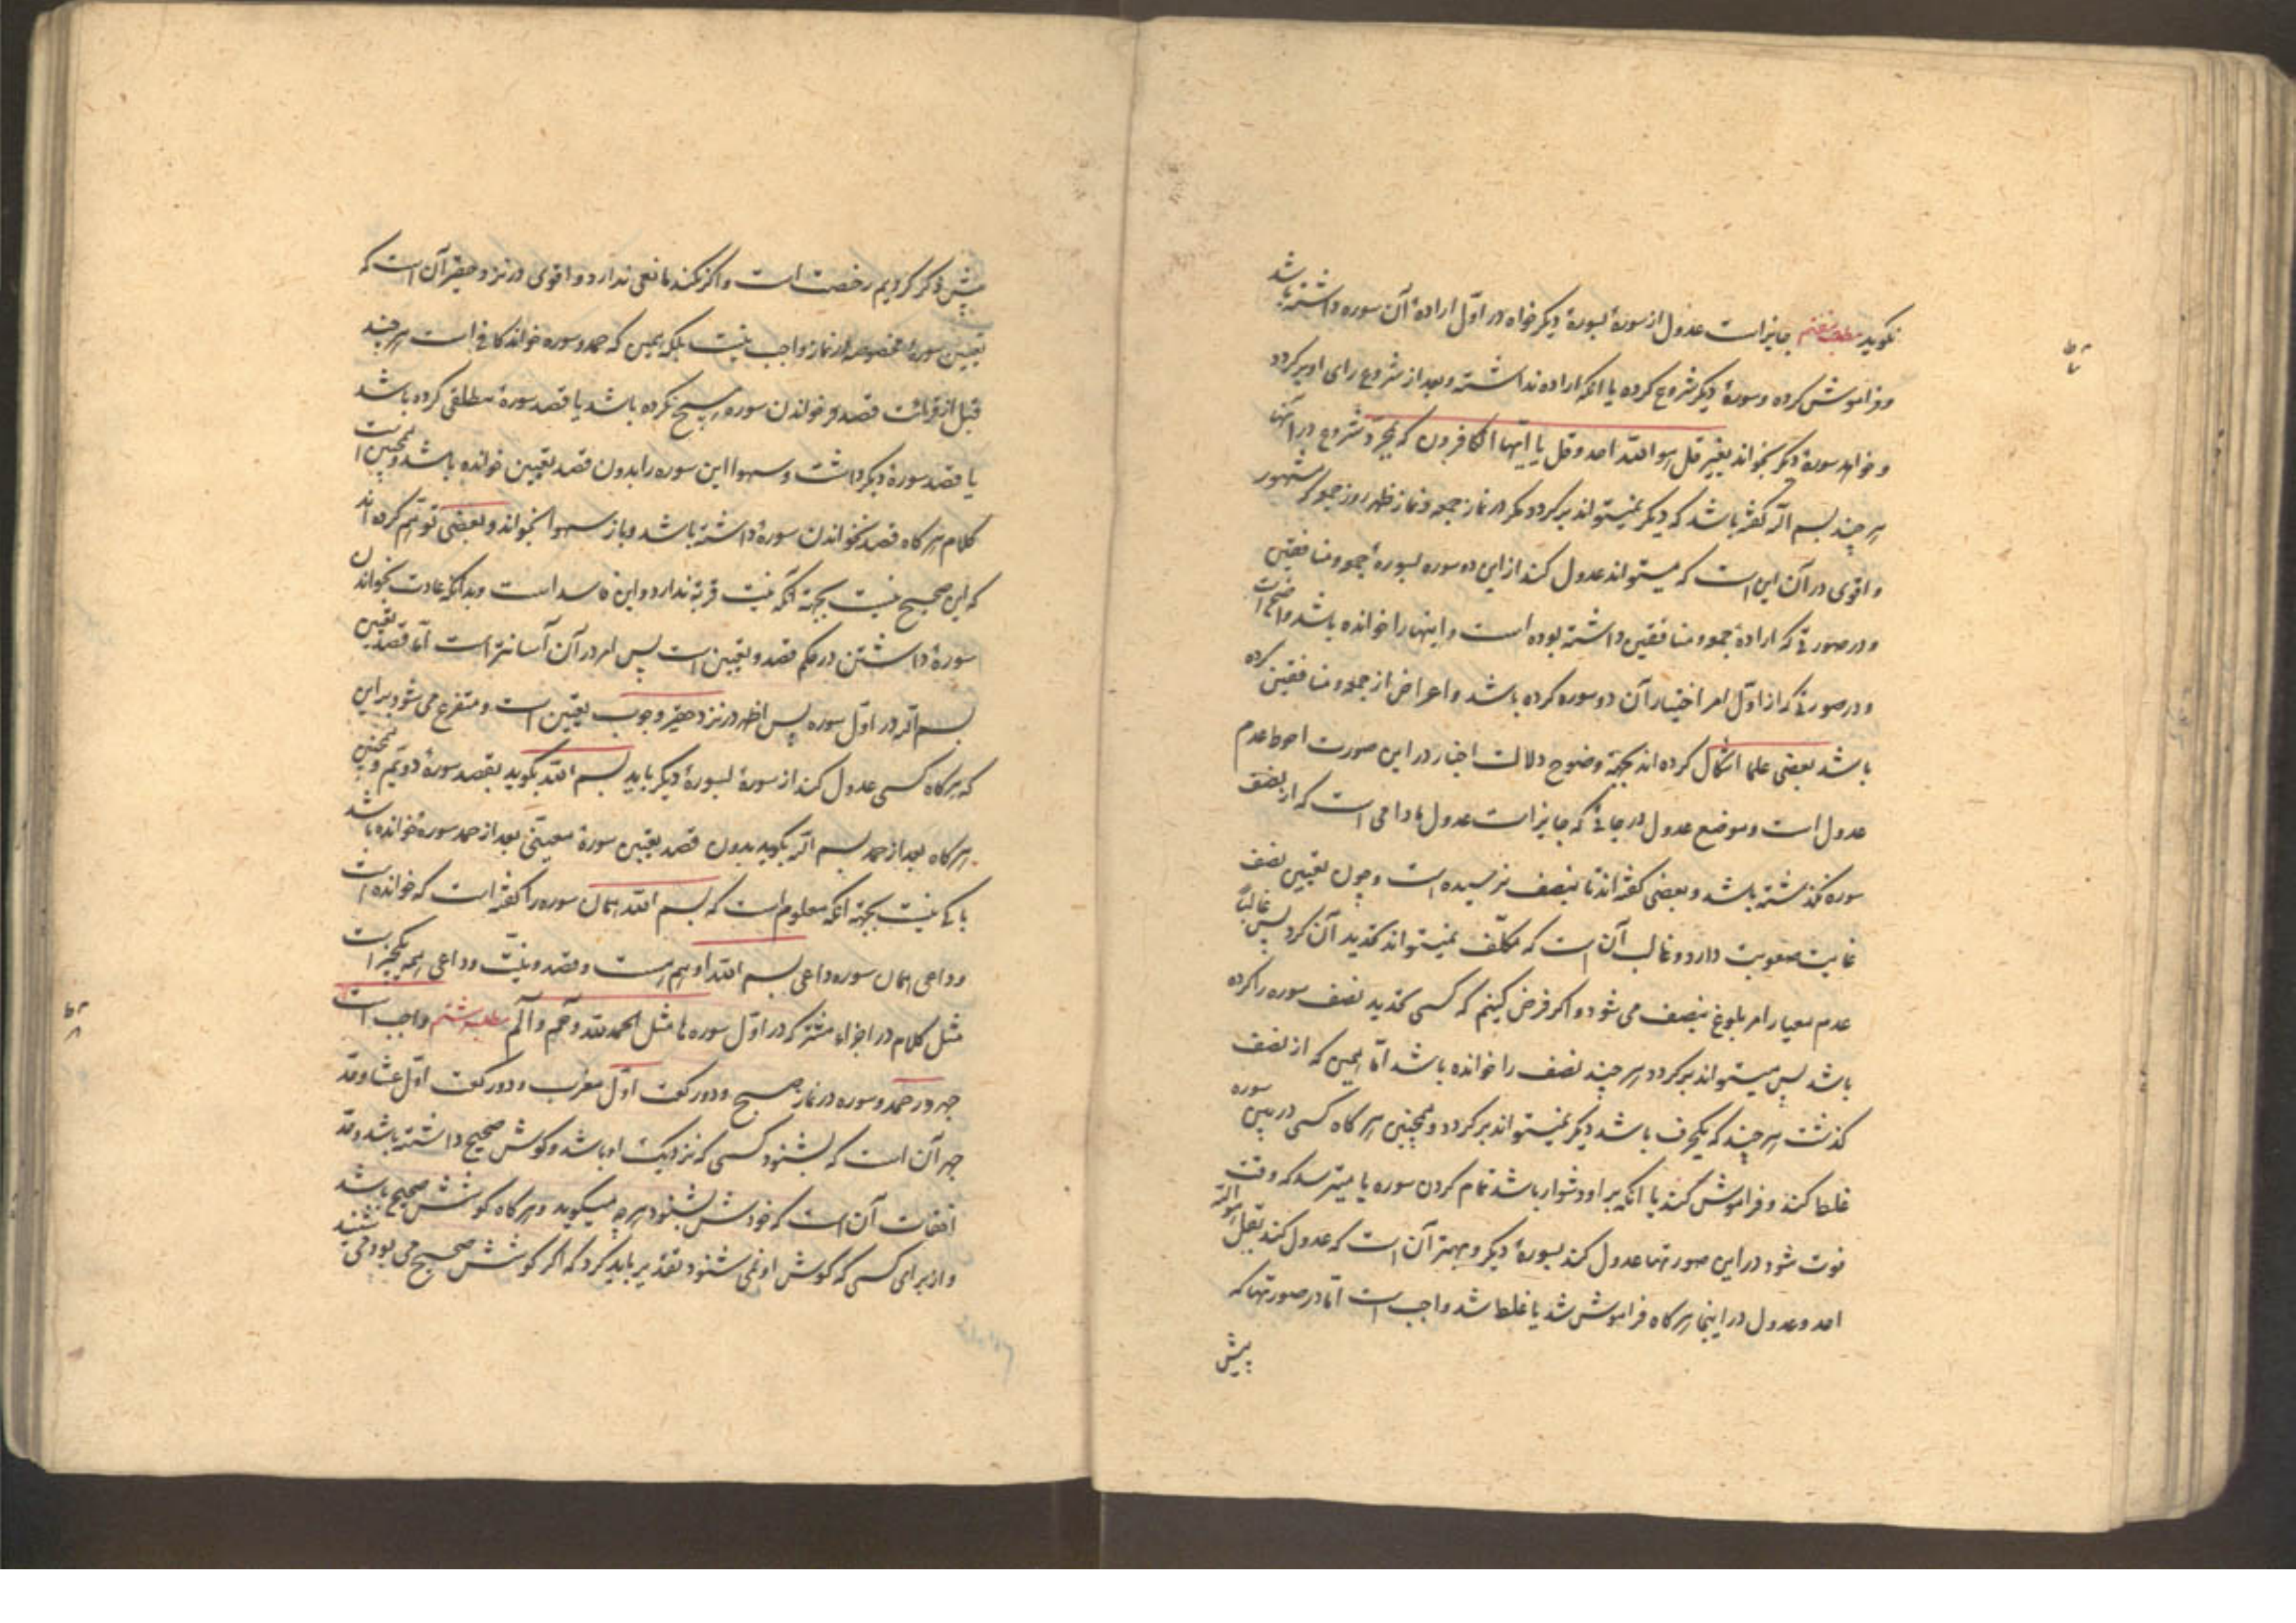 نکوید مطلب هفتم جایز است عدول از سورۀ بسورۀ دیکر خواه در اوّل ارادۀ آن سوره داشته باشد
و فراموش کرده و سورۀ دیکر شروع کرده یا انکه اراده نداشته و بعد از شروع رای او برکردد
و خواهد سورۀ دیکر بخواند بغیر قل هو اللّه احد و قل یا ایّها الکافرون که بمجرّد شروع در انها
هر چند بسم اللّه کفته باشد که دیکر نمیتواند برکردد مکر در نماز جمعه و نماز ظهر روز جمعه که مشهور
و اقوی در آن این است که میتواند عدول کند از این دو سوره بسورۀ جمعه و منافقین
و در صورتی که ارادۀ جمعه و منافقین داشته بوده است و اینها را خوانده باشد واضح است
و در صورتی که از اوّل امر اختیار آن دو سوره کرده باشد و اعراض از جمعه و منافقین کرده
باشد بعضی علما اشکال کرده اند بجهة وضوح دلالت اخبار در این صورت احوط عدم
عدول است و موضع عدول در جائی که جایز است عدول مادامی است که از نصف
سوره نکذشته باشد و بعضی کفته اند تا بنصف نرسیده است و چون تعیین نصف
غایت صعوبت دارد و غالب آن است که مکلّف نمیتواند تحدید آن کرد پس غالباً
عدم معیار امر بلوغ بنصف می شود و اکر فرض کنیم که کسی تحدید نصف سوره را کرده
باشد پس میتواند برکردد هر چند نصف را خوانده باشد امّا همین که از نصف
کذشت هر چند که یکحرف باشد دیکر نمیتواند برکردد و همچنین هر کاه کسی در بین سوره
غلط کند و فراموش کند یا انکه بر او دشوار باشد تمام کردن سوره یا میترسد که وقت
فوت شود در این صورتها عدول کند بسورۀ دیکر و بهتر آن است که عدول کند بقل هو اللّه
احد و عدول در اینجا هر کاه فراموش شد یا غلط شد واجب است امّا در صورتها که
پیش
پیش ذکر کردیم رخصت است و اکر نکند مانعی ندارد و اقوی در نزد حقیر آن است که
تعیین سورۀ مخصوصه از نماز واجب نیست بلکه همین که حمد و سوره خواند کافی است هر چند
قبل از قرائت قصد خواندن سوره هیچ نکرده باشد یا قصد سورۀ مطلقی کرده باشد
یا قصد سورۀ دیکر داشت و سهوا این سوره را بدون قصد تعیین خوانده باشد و همچنین است
کلام هر کاه قصد نخواندن سورۀ داشته باشد و باز سهوا بخواند و بعضی توهّم کرده اند
که این صحیح نیست بجهة آنکه نیت قربة ندارد و این فاسد است و بدانکه عادت بخواندن
سورۀ داشتن در حکم قصد و تعیین است پس امر در آن آسانتر است امّا قصد تعیین
بسم اللّه در اوّل سوره پس اظهر در نزد حقیر وجوب تعیین است و متفرع می شود بر این
که هر کاه کسی عدول کند از سورۀ بسورۀ دیکر باید بسم اللّه بکوید بقصد سورۀ دویّم و همچنین
هر کاه بعد از حمد بسم اللّه بکوید بدون قصد تعیین سورۀ معیّنی بعد از حمد سورۀ خوانده باشد
باکی نیست بجهة انکه معلوم است که بسم اللّه همان سوره را کفته است که خوانده است
و داعی همان سوره داعی بسم اللّه او هم هست و قصد و نیّت و داعی همه یکچیز است
مثل کلام در اجزاء مشترکه در اوّل سوره ها مثل الحمد للّه و حم و الم مطلب هشتم واجب است
جهر در حمد و سوره در نماز صبح و دو رکعت اوّل مغرب و دو رکعت اوّل عشا و حد
جهر آن است که بشنود کسی که نزدیک او باشد و کوش صحیح داشته باشد و حد
اخفات آن است که خودش بشنود هر چه میکوید و هر کاه کوشش صحیح باشد
و از برای کسی که کوش او نمی شنود تقدیر باید کرد که اکر کوشش صحیح می بود می شنید